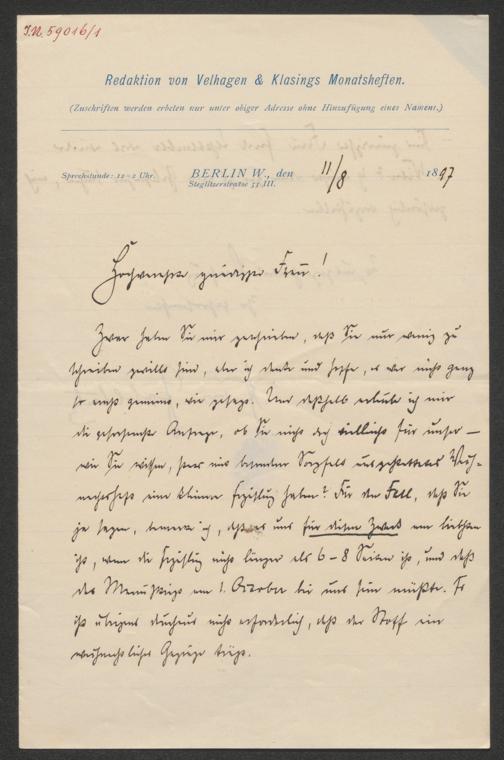 J.N. 59016/1
Redaktion von Velhagen & Klasings Monatsheften.
(Zuschriften werden erbeten nur unter obiger Adresse ohne Hinzufügung eines Namens.)
Sprechstunde: 12–2 Uhr. BERLIN W., den 11/8 1897
Steglitzerstrasse 53 III.
Hochverehrte gnädigste Frau!
Zwar haben Sie mir geschrieben, daß Sie nur wenig zu
schreiben gewillt sind, aber ich denke und hoffe, es war nicht ganz
so ernst gemeint, wie gesagt. Und deßhalb erlaube ich mir
die gehorsamste Anfrage, ob Sie nicht doch vielleicht für unser –
wie Sie wissen, stets mit besonderer Sorgfalt ausgestattetes Weih-
nachtsheft eine kleinere haben? Für den Fall, daß Sie
ja sagen, bemerke ich, daß es uns für diesen Zweck am liebsten
ist, wenn die nicht länger als 6–8 Seiten ist, und daß
das Manuskript am 1. Oktober bei uns sein müßte. Es
ist übrigens durchaus nicht erforderlich, daß der Stoff ein
weihnachtliches Gepräge trägt.